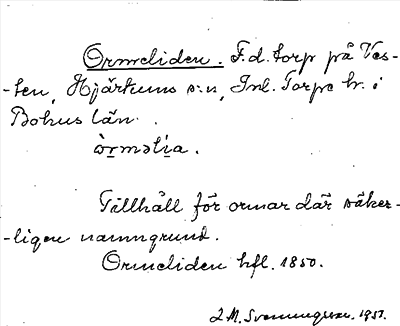 Ormeliden. F.d. torp på Ves-
-ten, Hjärtums s:n, Inl. Torpe hr. i
Bohus län.
òrməlìa.
Tillhåll för ormar där säker-
-ligen namngrund.
Ormeliden hfl. 1850.
J.M. Svenungsson. 1951.